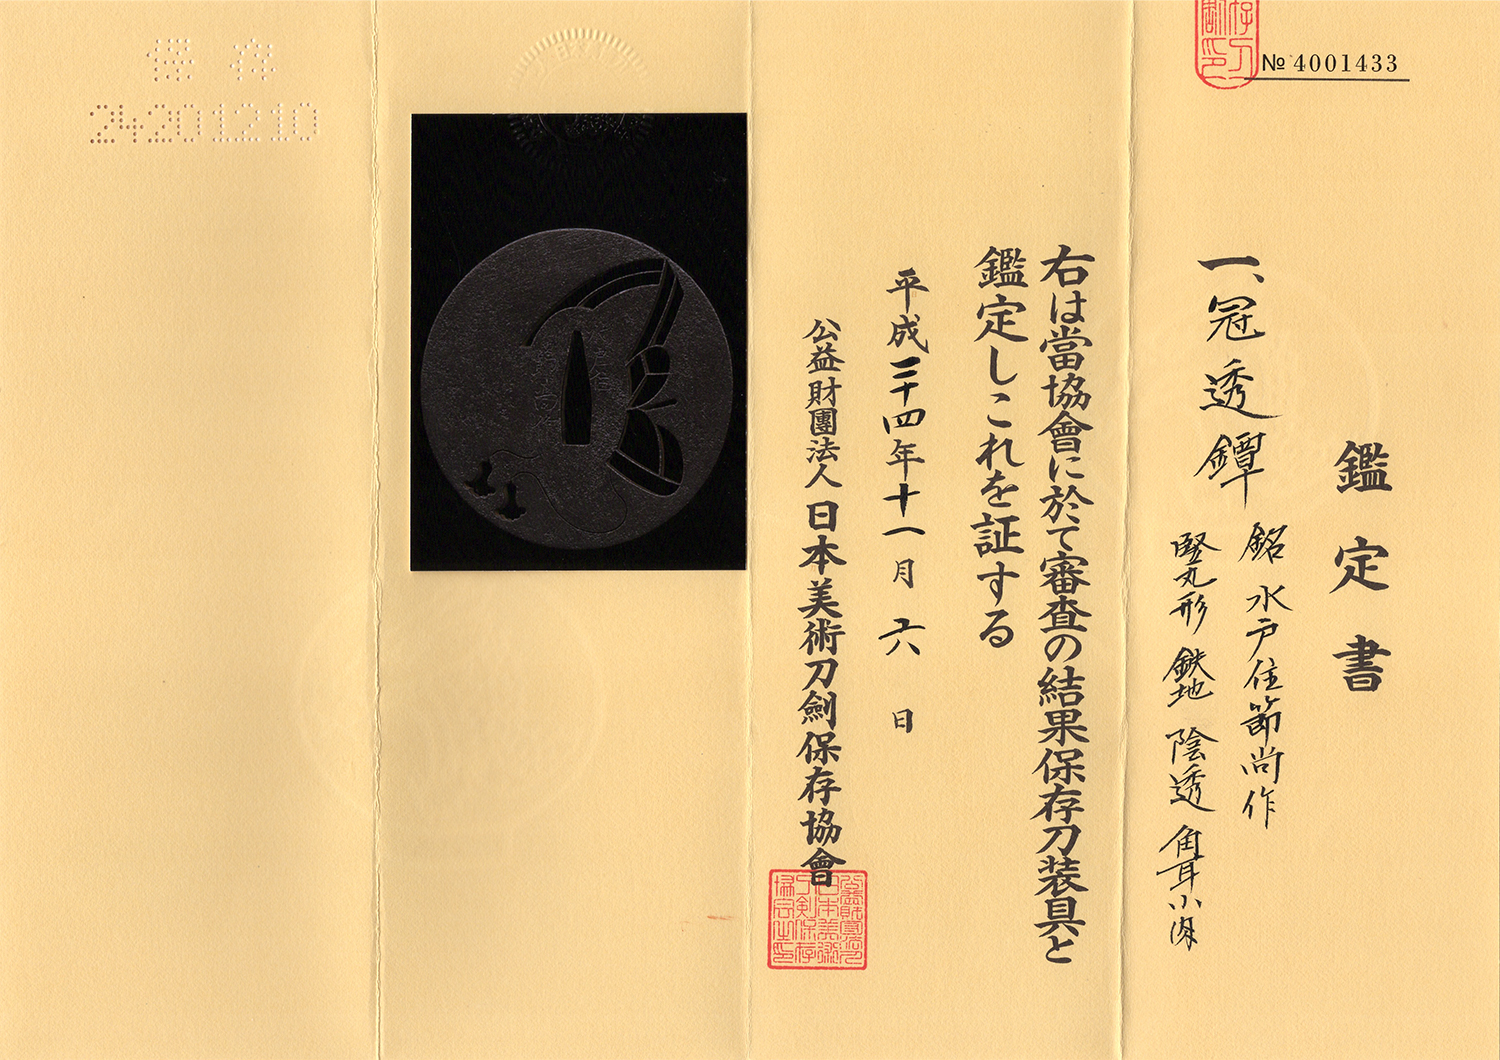 № 4001433
鑑定書
一、冠透鐔
銘 水戸住節尚作
竪丸形 鉄地 陰透 角耳小肉
右は當協會に於て審査の結果保存刀装具と
鑑定しこれを証する
平成二十四年十一月六日
公益財團法人 日本美術刀劍保存協會
保存
24201210